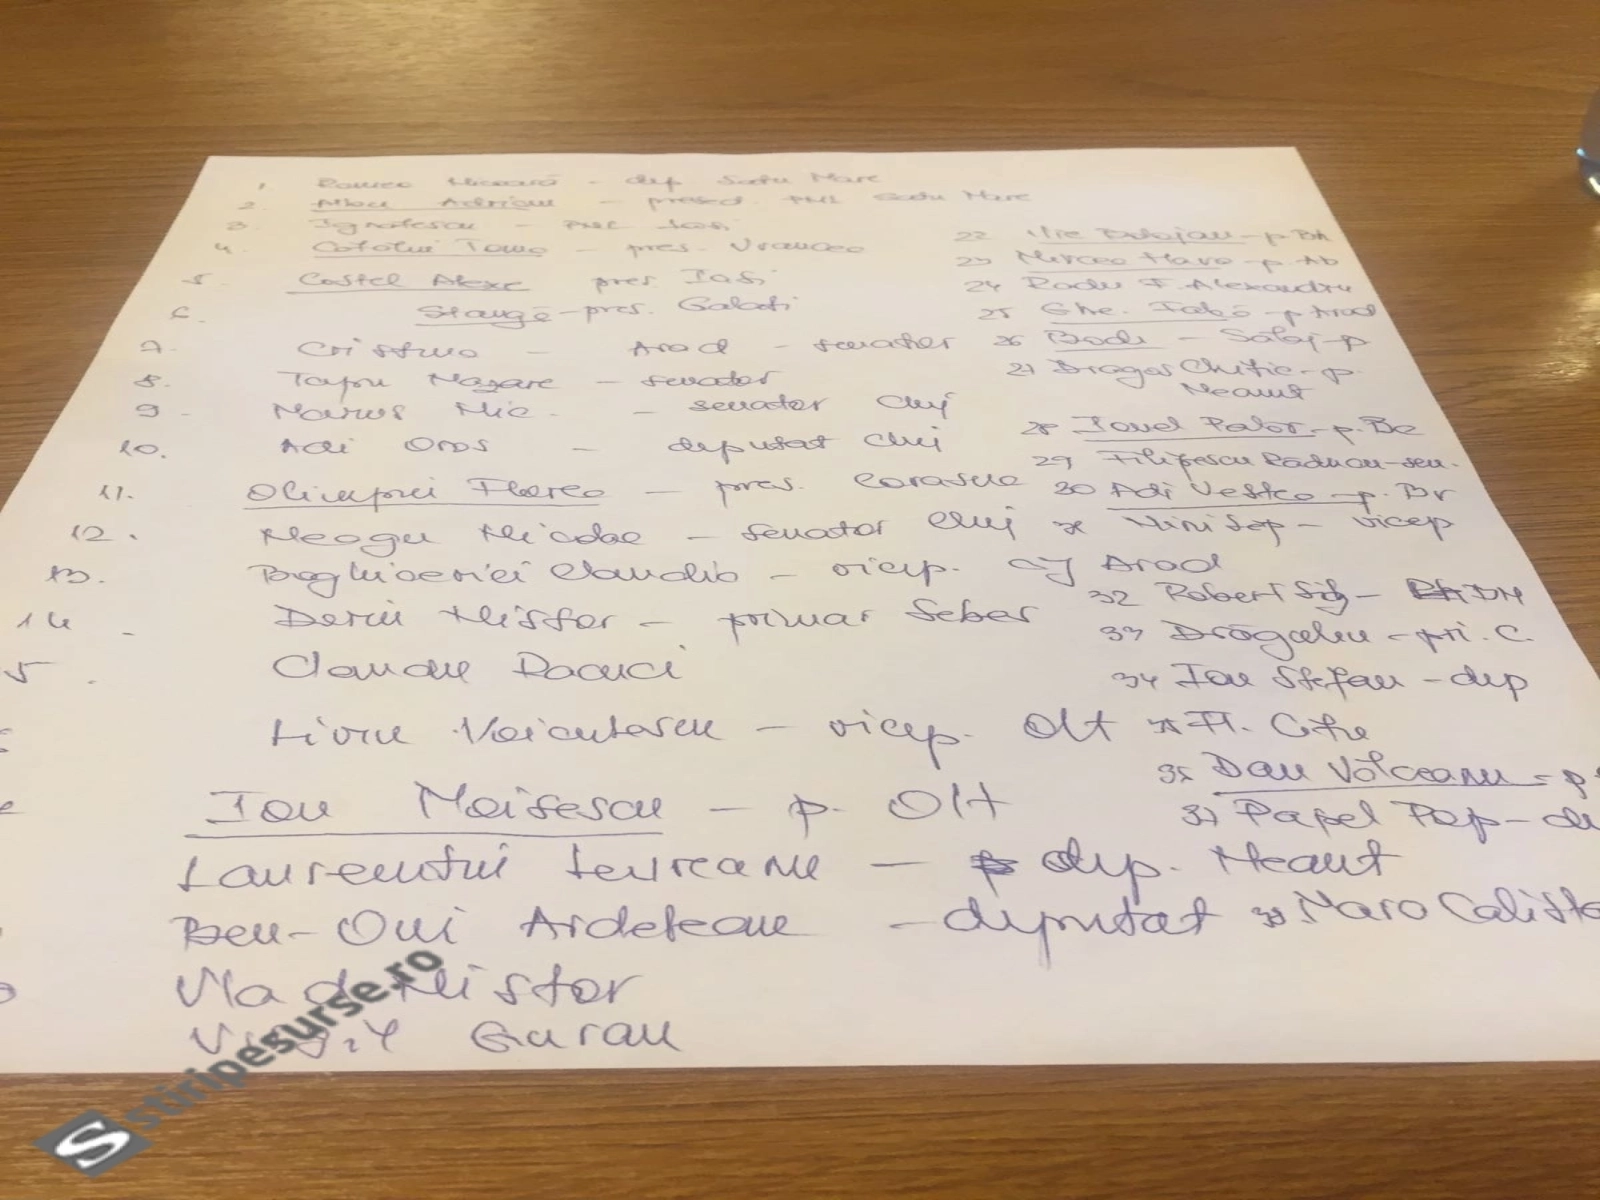 1 Romeo Nicoară - dep Satu Mare
2. Albu Adrian - presed. PNL Satu Mare
3. Ignatescu - PNL Iasi
4. Cătălin Toma - pres. Vrancea
5. Costel Alexe pres. Iasi
6. Stângă - pres. Galati
7. Cristina - Arad - senator
8. Tapu Nazare - senator
9. Marius Nic - senator Cluj
10. Adi Oros - deputat Cluj
11. Olimpiu Florea - pres.
12. Neagu Nicolae - senator Cluj
13. Claudiu - vicep. CJ Arad
14 - Dorin Nistor - primar Sebes
5. Claudiu Racuci
Liviu Voiculescu - vicep. Olt
Ion Moisescu - p. Olt
Laurentiu Leoreanu - dep. Neamt
Ben-Oni Ardelean - deputat
Vlad Nistor
Virgil Guran
22 Ilie Bolojan - p. Bh
23 Mircea Hava - p. Ab
24 Radu F. Alexandru
25 Ghe. Falcă - p Arad
26 Bode - Sălaj - p
27 Dragos Chitic - p.
Neamt
28 Ionel Palăr - p. Bc
29 Filipescu Răducan - sen.
30 Adi Vestea - p. Br
Nini Săp - vicep
32 Robert Sig - DM
33 Drăgulin - pri. C.
34 Ion Stefan - dep
Fl. Cîtu
Dan Vîlceanu - p
37 Papel Pop - de
Mara Calista
stiripesurse.ro